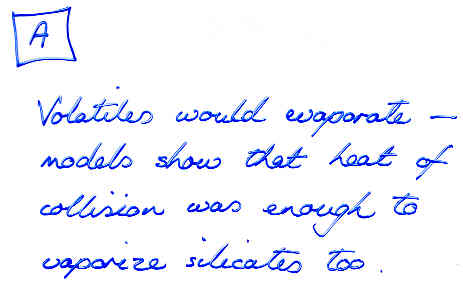 A
Volatiles would evaporate –
models show that heat of
collision was enough to
vaporize silicates too.